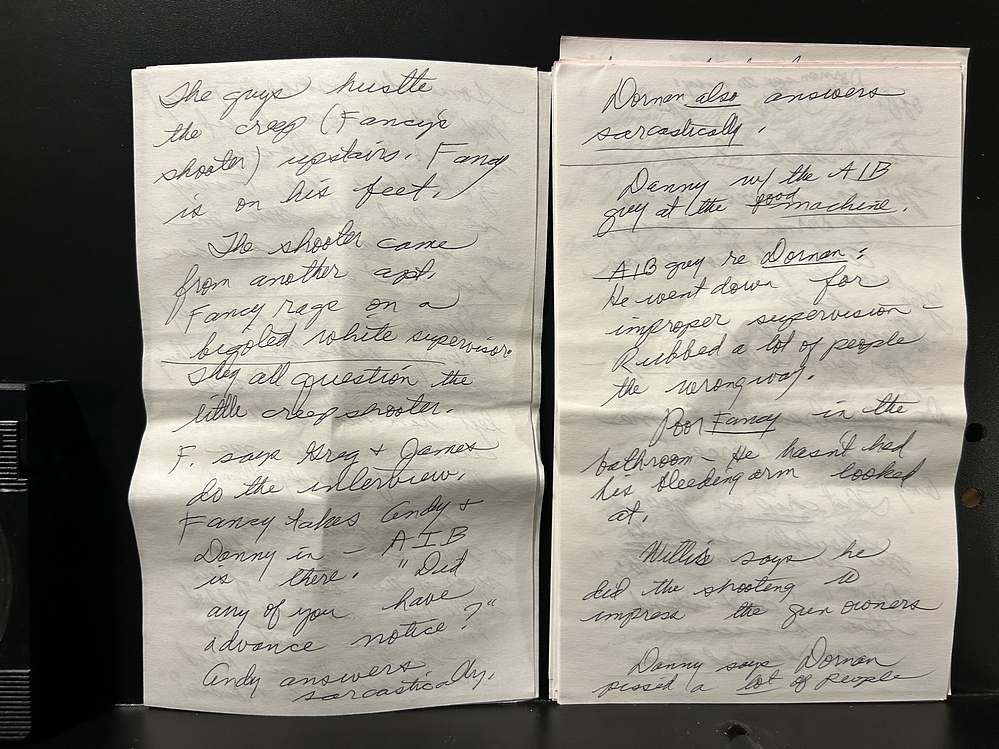 The guys hustle
the creep (Fancy's
shooter) upstairs. Fancy
is on his feet.
The shooter came
from another apt.
Fancy rags on a
bigoted white supervisor.
They all question the
little creep shooter.
F. says Greg + James
do the interview.
Fancy takes Andy +
Danny in – AIB
is there. "Did
any of you have
advance notice?"
Andy answers
sarcastically.
Dornan also answers
sarcastically.
Danny w/ the AIB
guy at the food machine.
AIB guy re Dornan:
He went down for
improper supervision –
Rubbed a lot of people
the wrong way.
Poor Fancy in the
bathroom – He hasn't had
his bleeding arm looked
at.
Willis says he
did the shooting to
impress the gun owners
Danny says Dornan
pissed a lot of people